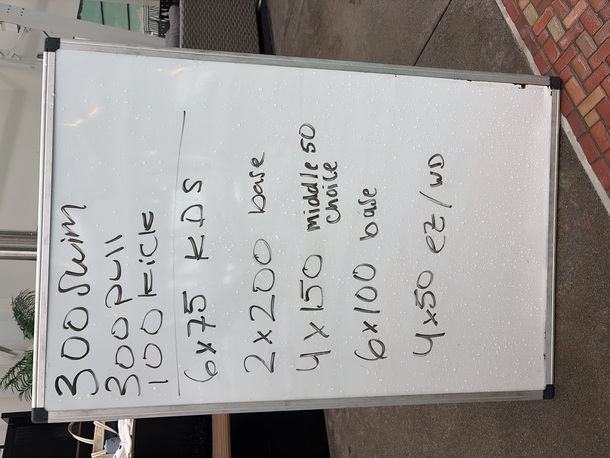 300 Swim
300 pull
100 Kick
6x75 KDS
2x200 base
4x150 middle 50
choice
6x100 base
4x50 ez/WD